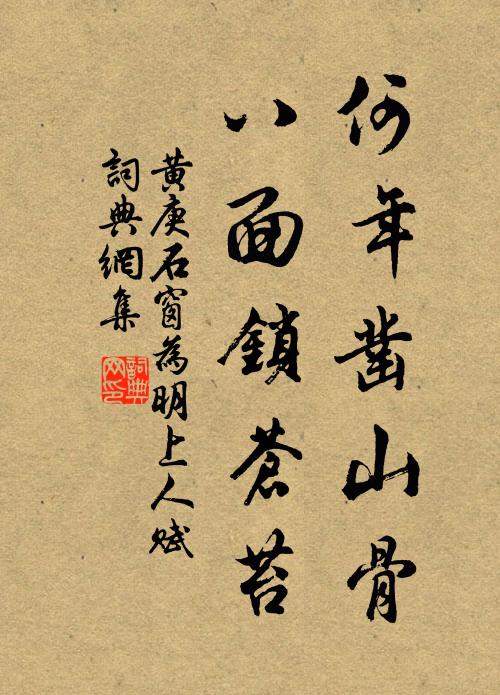 何年凿山骨
八面鎖蒼苔
黄庚石窗為明上人赋
詞典網集
詞典網印